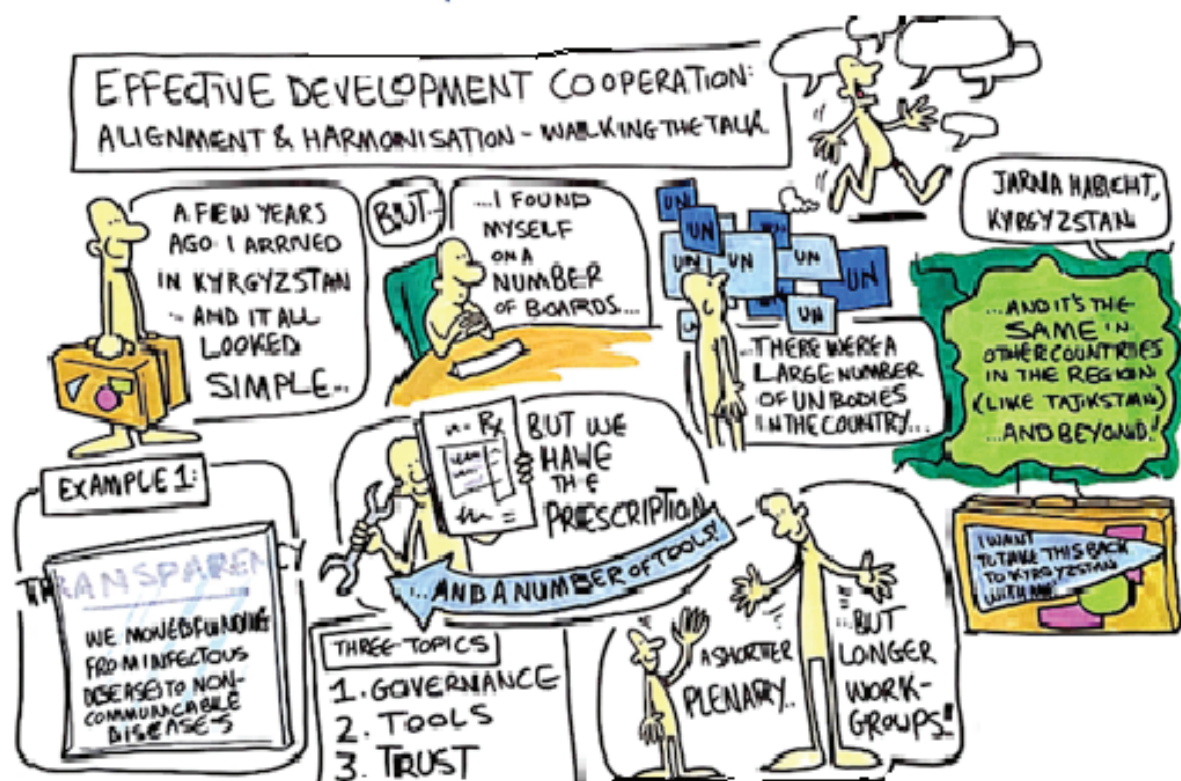 EFFECTIVE DEVELOPMENT COOPERATION:
ALIGNMENT & HARMONISATION - WALKING THE TALK
A FEW YEARS
AGO I ARRIVED
IN KYRGYZSTAN
- AND IT ALL
LOOKED
SIMPLE...
BUT...
...I FOUND
MYSELF
ON A
NUMBER
OF BOARDS...
UN
UN
UN
UN
UN
UN
UN
UN
...THERE WERE A
LARGE NUMBER
OF UN BODIES
IN THE COUNTRY...
JARNIA HABICHT,
KYRGYZSTAN
...AND IT'S THE
SAME IN
OTHER COUNTRIES
IN THE REGION
(LIKE TAJIKSTAN)
...AND BEYOND!
I WANT
TO TAKE THIS BACK
TO KYRGYZSTAN
WITH ME
Rx
BUT WE
HAVE
THE
PRESCRIPTION
...AND A NUMBER OF TOOLS!
EXAMPLE 1:
TRANSPARENCY
WE MOVED FUNDING
FROM INFECTOUS
DISEASES TO NON-
COMMUNCABILE
DISEASES
THREE TOPICS
1. GOVERNANCE
2. TOOLS
3. TRUST
A SHORTER
PLENARY..
...BUT
LONGER
WORK-
GROUPS!!